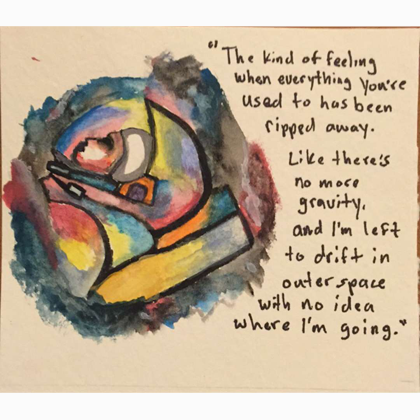 "The kind of feeling
when everything you're
used to has been
ripped away.
Like there's
no more
gravity,
and I'm left
to drift in
outer space
with no idea
where I'm going."